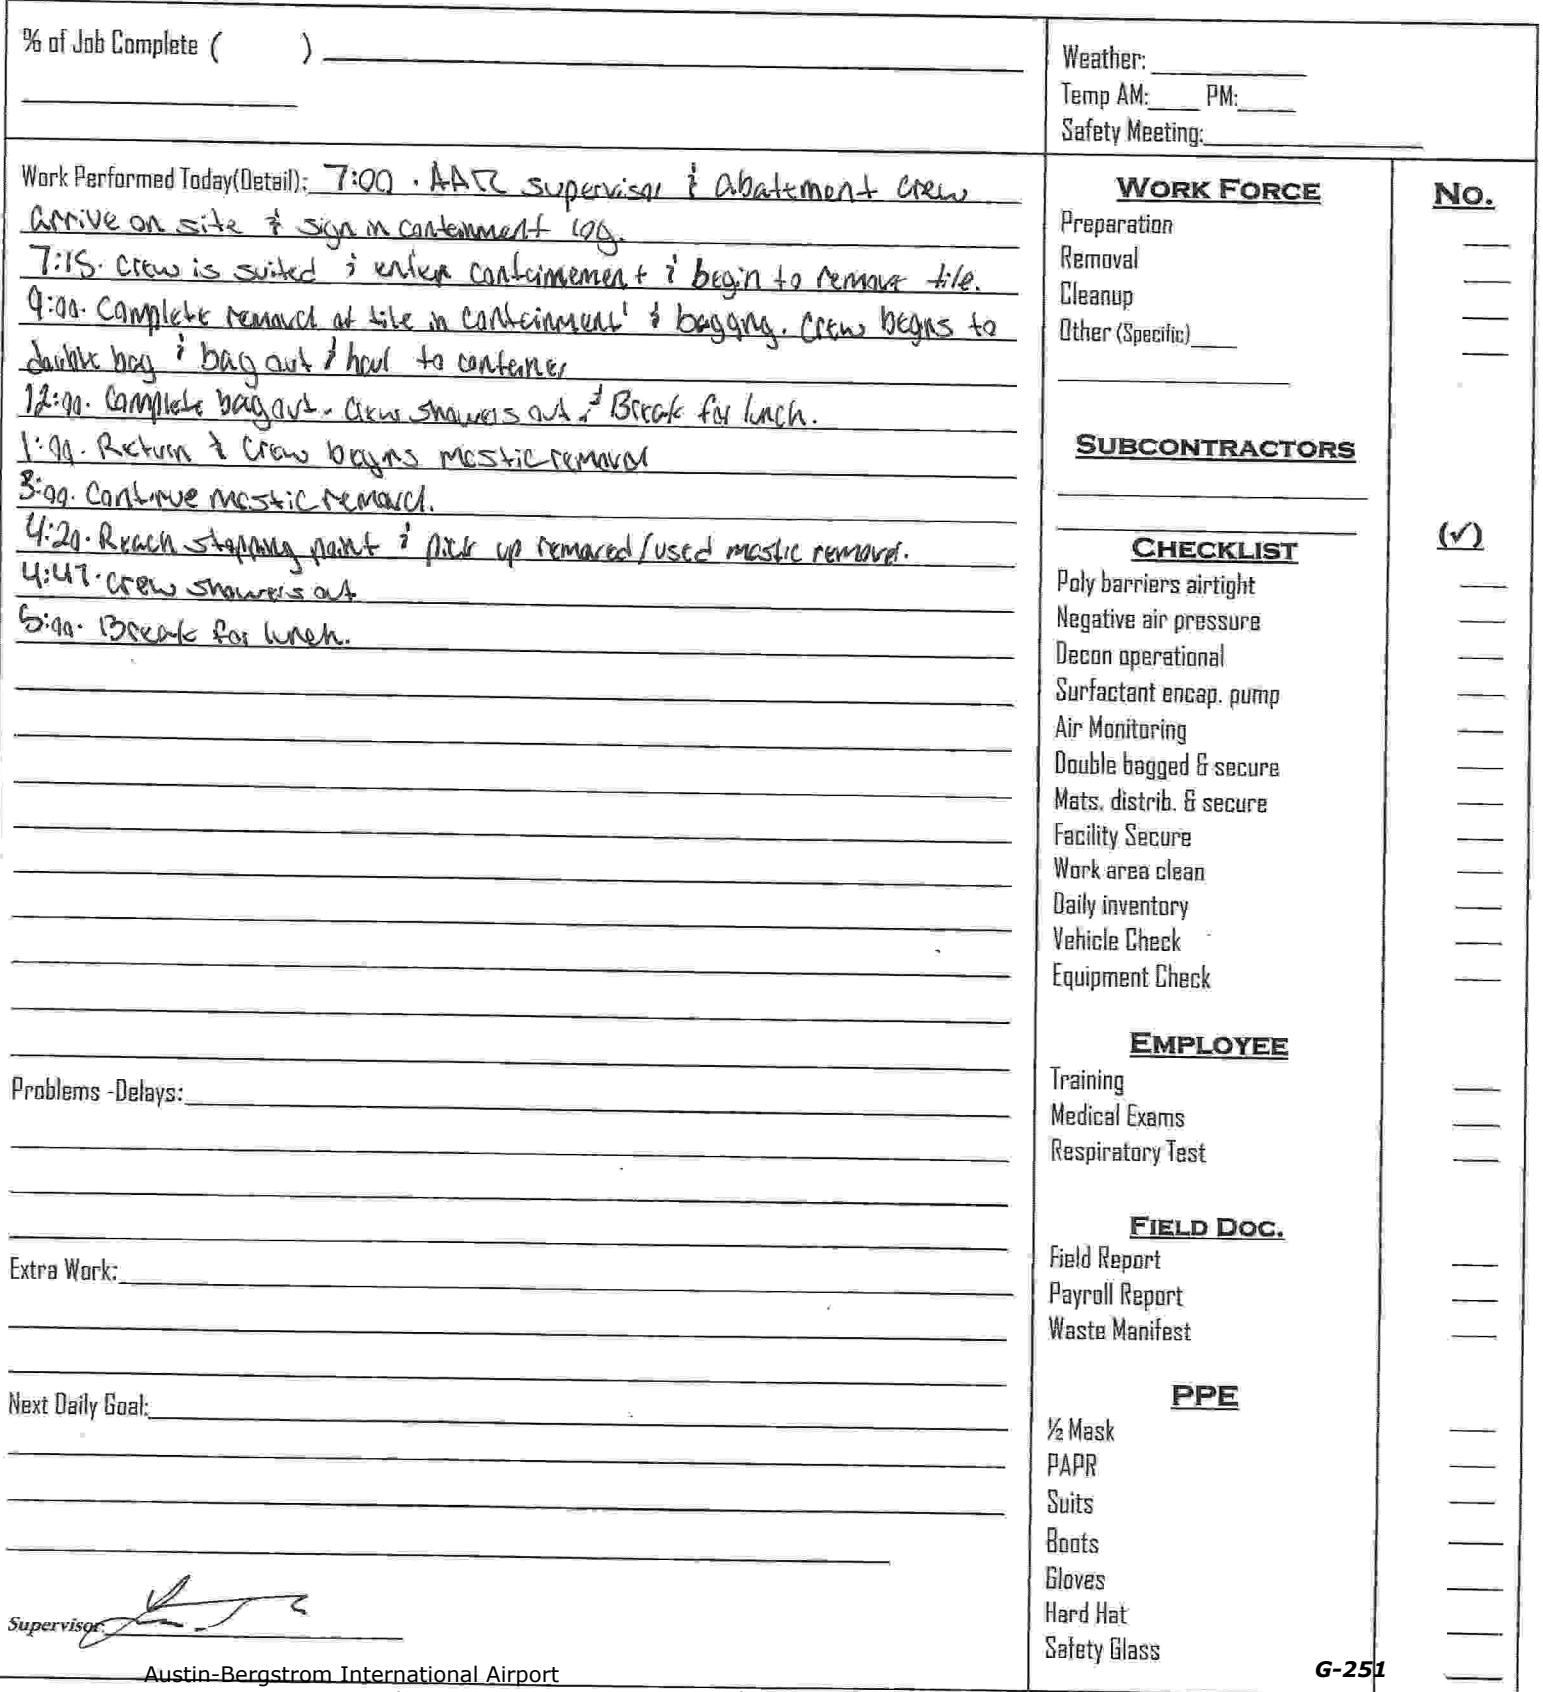 % of Job Complete ( )
Weather:
Temp AM: PM:
Safety Meeting:
Work Performed Today(Detail): 7:00 . AAR supervisor & abatement crew
arrive on site & sign in containment log.
7:15. Crew is suited & enter containement & begin to remove tile.
9:00. Complete removal of tile in containment & bagging. Crew begins to
double bag & bag out & haul to container
12:00. Complete bag out. Crew showers out & Break for lunch.
1:00. Return & Crew begins mastic removal
3:00. Continue mastic removal.
4:20. Reach stopping point & pick up removed/used mastic remover.
4:47. Crew showers out
5:00. Break for lunch.
Problems -Delays:
Extra Work:
Next Daily Goal:
Supervisor:
WORK FORCE No.
Preparation
Removal
Cleanup
Other (Specific)
SUBCONTRACTORS
CHECKLIST (✓)
Poly barriers airtight
Negative air pressure
Decon operational
Surfactant encap. pump
Air Monitoring
Double bagged & secure
Mats. distrib. & secure
Facility Secure
Work area clean
Daily inventory
Vehicle Check
Equipment Check
EMPLOYEE
Training
Medical Exams
Respiratory Test
FIELD DOC.
Field Report
Payroll Report
Waste Manifest
PPE
½ Mask
PAPR
Suits
Boots
Gloves
Hard Hat
Safety Glass
Austin-Bergstrom International Airport
G-251